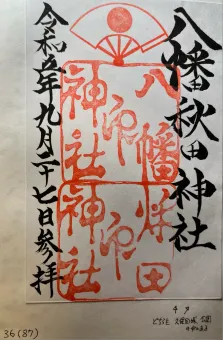 八幡秋田神社
八幡神社
秋田神社
令和五年九月二十七日参拝
36(87)